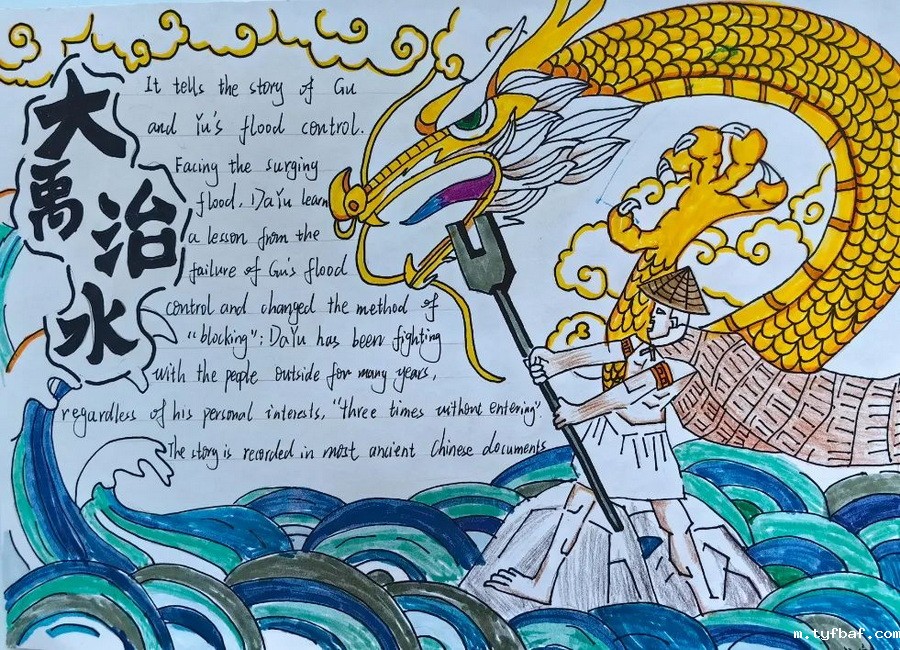 大禹治水
It tells the story of Gu
and Yu's flood control.
Facing the surging
flood, DaYu learn
a lesson from the
failure of Gu's flood
control and changed the method of
"blocking"; DaYu has been fighting
with the people outside for many years,
regardless of his personal interests, "three times without entering".
The story is recorded in most ancient Chinese documents
m.tyfbaf.com